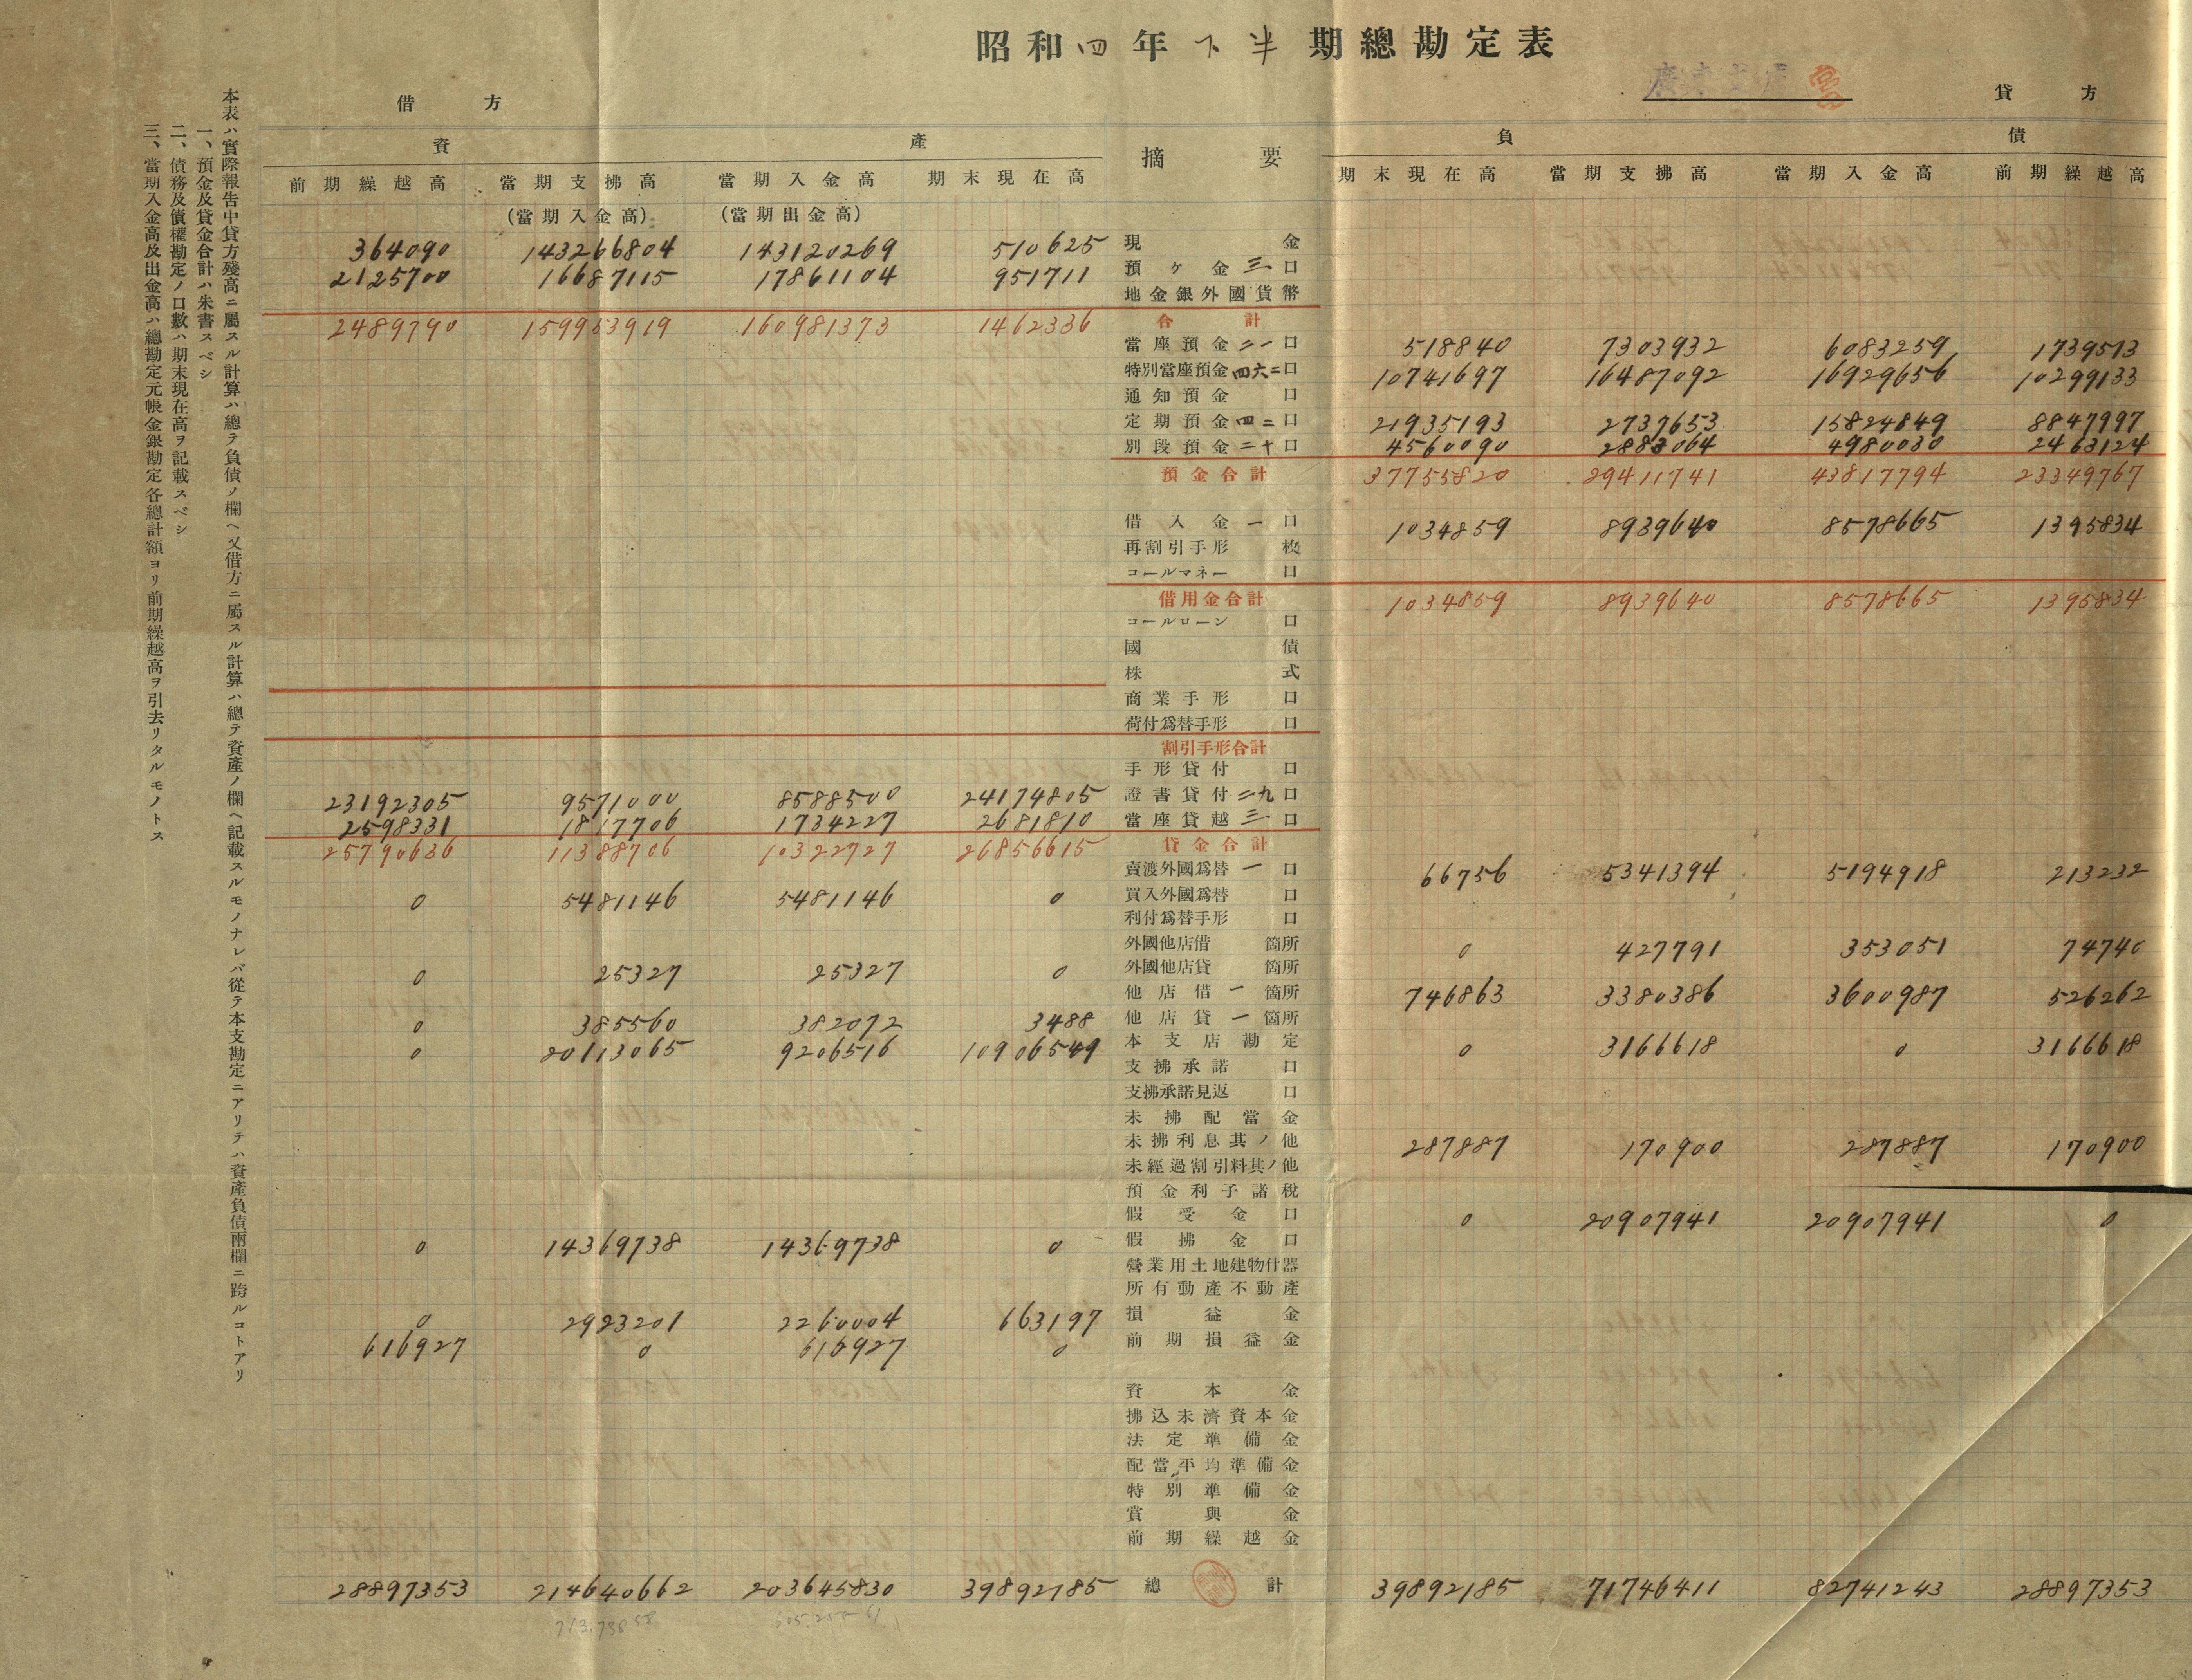 昭和四年下半期總勘定表
借方
貸方
資產
摘要
負債
前期繰越高 當期支拂高 當期入金高 期末現在高 期末現在高 當期支拂高 當期入金高 前期繰越高
(當期入金高) (當期出金高)
364090 143266804 143120269 510625 現金
2125700 16687115 17861104 951711 預ヶ金三口
地金銀外國貨幣
2489790 159953919 160981373 1462336 合計
當座預金二一口 518840 7303932 6083259 1739513
特別當座預金四六二口 10741697 16487092 16929656 10299133
通知預金口
定期預金四二口 21935193 2737653 15824849 8847997
別段預金二十口 4560090 2883064 4980030 2463124
預金合計 37755820 29411741 43817794 23349767
借入金一口 1034859 8939640 8578665 1395834
再割引手形枚
コールマネー口
借用金合計 1034859 8939640 8578665 1395834
コールローン口
國債
株式
商業手形口
荷付爲替手形口
割引手形合計
手形貸付口
23192305 9571000 8588500 24174805 證書貸付二九口
2598331 1817706 1734227 2681810 當座貸越三口
25790636 11388706 10322727 26856615 貸金合計
賣渡外國爲替一口 66756 5341394 5194918 213232
0 5481146 5481146 0 買入外國爲替口
利付爲替手形口
外國他店借箇所 0 427791 353051 74740
0 25327 25327 0 外國他店貸箇所
他店借一箇所 746863 3380386 3600987 526262
0 385560 382072 3488 他店貸一箇所
0 20113065 9206516 10906549 本支店勘定 0 3166618 0 3166618
支拂承諾口
支拂承諾見返口
未拂配當金
未拂利息其ノ他 287887 170900 287887 170900
未經過割引料其ノ他
預金利子諸稅
假受金口 0 20907941 20907941 0
0 14369738 14369738 0 假拂金口
營業用土地建物什器
所有動產不動產
0 2923201 2260004 663197 損益金
616927 0 616927 0 前期損益金
資本金
拂込未濟資本金
法定準備金
配當平均準備金
特別準備金
賞與金
前期繰越金
28897353 214640662 203645830 39892185 總計 39892185 71746411 82741243 28897353
本表ハ實際報告中貸方殘高ニ屬スル計算ハ總テ負債ノ欄ヘ又借方ニ屬スル計算ハ總テ資產ノ欄ヘ記載スルモノナレバ從テ本支勘定ニアリテハ資產負債兩欄ニ跨ルコトアリ
一、預金及貸金合計ハ朱書スベシ
二、債務及債權勘定ノ口數ハ期末現在高ヲ記載スベシ
三、當期入金高及出金高ハ總勘定元帳金銀勘定各總計額ヨリ前期繰越高ヲ引去リタルモノトス